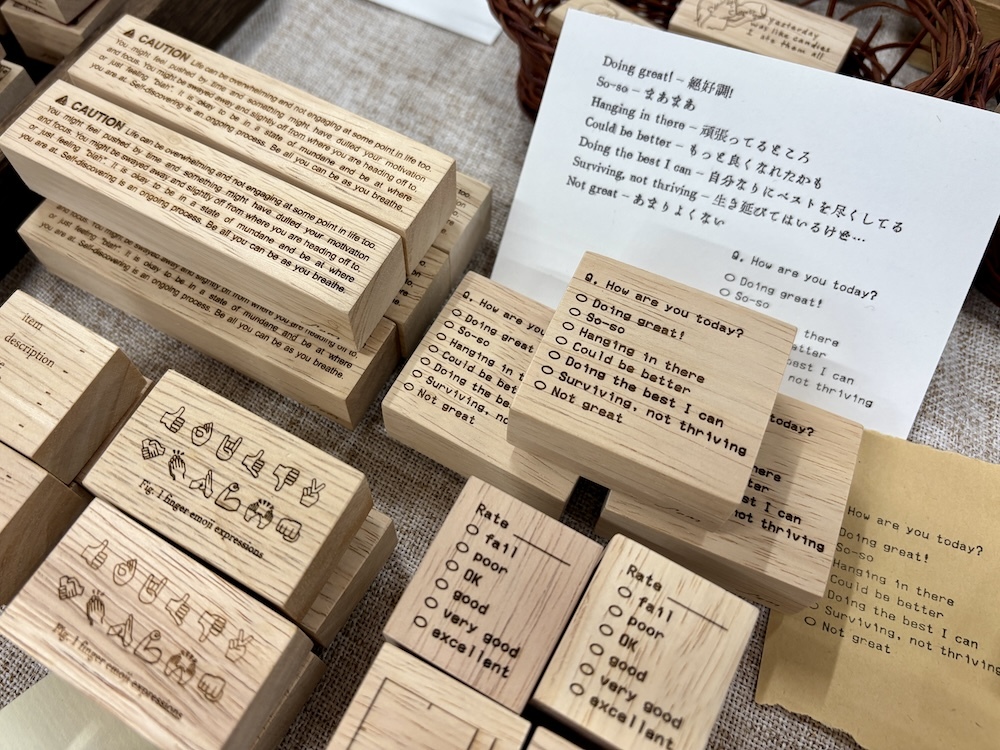 yesterday
was like candies
I ate them all
Doing great! – 絶好調!
So-so – まあまあ
Hanging in there – 頑張ってるところ
Could be better – もっと良くなれたかも
Doing the best I can – 自分なりにベストを尽くしてる
Surviving, not thriving – 生き延びてはいるけど…
Not great – あまりよくない
Q. How are you today?
Doing great!
So-so
there
etter
st I can
not thriving
⚠ CAUTION Life can be overwhelming and not engaging at some point in life too.
You might feel pushed by time and something might have dulled your motivation
and focus. You might be swayed away and slightly off from where you are heading off to.
or just feeling "blah". It is okay to be in a state of mundane and be at where
you are at. Self-discovering is an ongoing process. Be all you can be as you breathe.
⚠ CAUTION Life can be overwhelming and not engaging at some point in life too.
You might feel pushed by time and something might have dulled your motivation
and focus. You might be swayed away and slightly off from where you are heading off to.
or just feeling "blah". It is okay to be in a state of mundane and be at where
you are at. Self-discovering is an ongoing process. Be all you can be as you breathe.
and focus. You might be swayed away and slightly off from where you are heading off to.
or just feeling "blah". It is okay to be in a state of mundane and be at where
you are at. Self-discovering is an ongoing process. Be all you can be as you breathe.
Q. How are you
Doing great!
So-so
Hanging in t
Could be bet
Doing the bes
Surviving, no
Not great
Q. How are you today?
Doing great!
So-so
Hanging in there
Could be better
Doing the best I can
Surviving, not thriving
Not great
today?
here
ter
st I can
not thriving
How are you today?
Doing great!
So-so
Hanging in there
Could be better
Doing the best I can
Surviving, not thriving
Not great
item
description
Fig. 1 finger emoji expressions.
Fig. 1 finger emoji expressions.
Rate
fail
poor
OK
good
very good
excellent
Rate
fail
poor
OK
good
very good
excellent